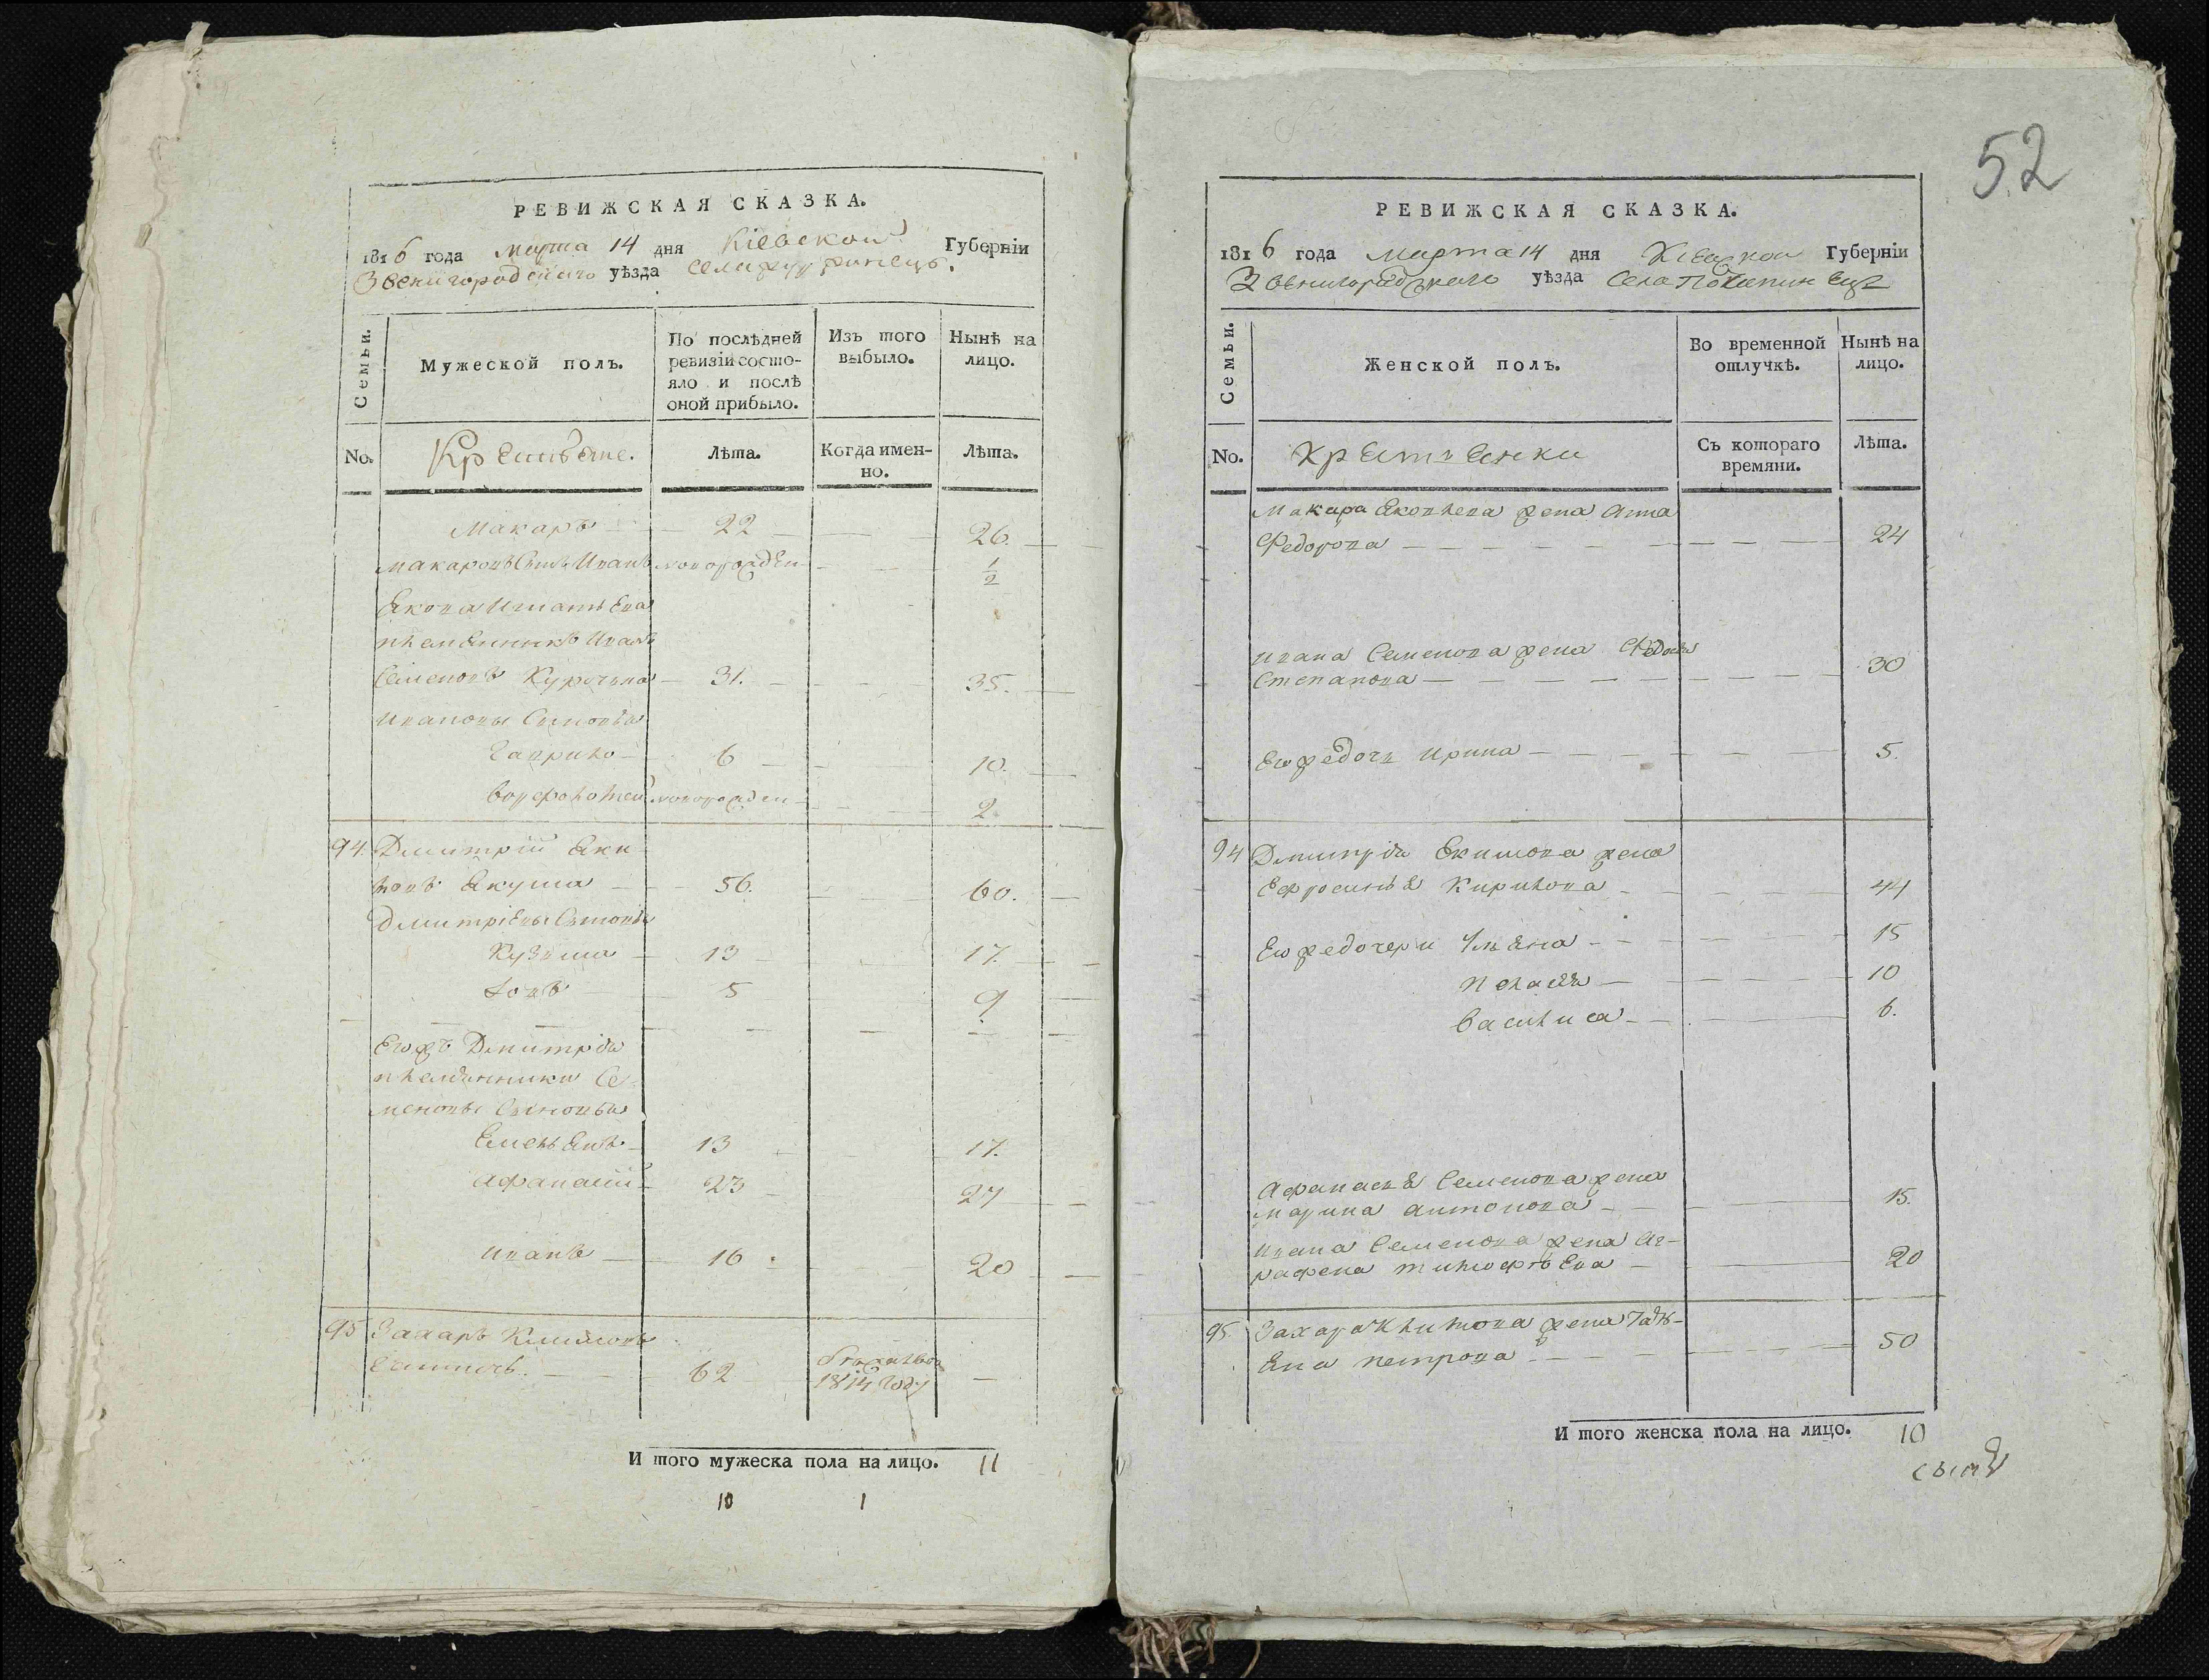 РЕВИЖСКАЯ СКАЗКА.
1816 года Марта 14 дня Кіевской Губерніи
Звенигородскаго уѣзда села
Семьи.
Мужеской полъ.
По послѣдней ревизіи состояло и послѣ оной прибыло.
Изъ того выбыло.
Нынѣ на лицо.
No.
Крестьяне.
Лѣта.
Когда именно.
Лѣта.
Макаръ 22 26.
Макаровъ Сынъ Иванъ новорожден 1/2
Якова Игнатьева
племянникъ Иванъ
Семеновъ Курочька 31. 35.
Ивановы Сыновья
Гаврило 6 10.
Ворфоломей новорожден 2.
94. Дмитрій Яки
мовъ Якуша 56. 60.
Дмитріевы Сыновья
Кузьма 13 17.
Іовъ 5 9
Егожъ Дмитрія
племянники Се
меновы Сыновья
Емельянъ 13 17.
Афанасій 23 27
Иванъ 16 20
95 Захаръ Климовъ
62 1814 году
И того мужеска пола на лицо. 11
10 1
52
РЕВИЖСКАЯ СКАЗКА.
1816 года Марта 14 дня Кіевской Губерніи
Звенигородскаго уѣзда Села
Семьи.
Женской полъ.
Во временной отлучкѣ.
Нынѣ на лицо.
No.
Крестьянки
Съ котораго времяни.
Лѣта.
Макара Яковлева жена Анна
Федорова 24
Ивана Семенова жена Федосья
Степанова 30
Егоже дочь Ирина 5.
94 Дмитрія Якимова жена
Ефросинья Кирилова 44
Егоже дочери Ульяна 15
Пелагея 10
Василиса 6.
Афанасья Семенова жена
Марина Антонова 15.
Ивана Семенова жена Аг-
рафена Тимофѣева 20
95. Захара Климова жена Татъ-
яна Петрова 50
И того женска пола на лицо. 10